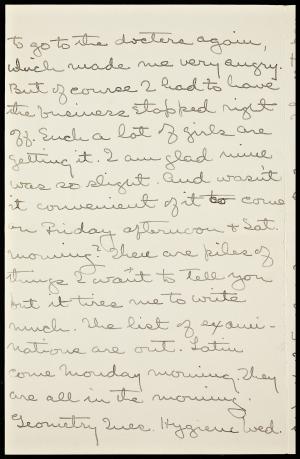 to go to the doctors again,
which made me very angry.
But of course I had to have
the business stopped right
off. Such a lot of girls are
getting it. I am glad mine
was so slight. And wasn't
it convenient of it to come
on Friday afternoon + Sat.
morning? There are piles of
things I want to tell you
but it tires me to write
much. The list of exami-
nations are out. Latin
come Monday morning. They
are all in the morning.
Geometry Tues. Hygiene Wed.